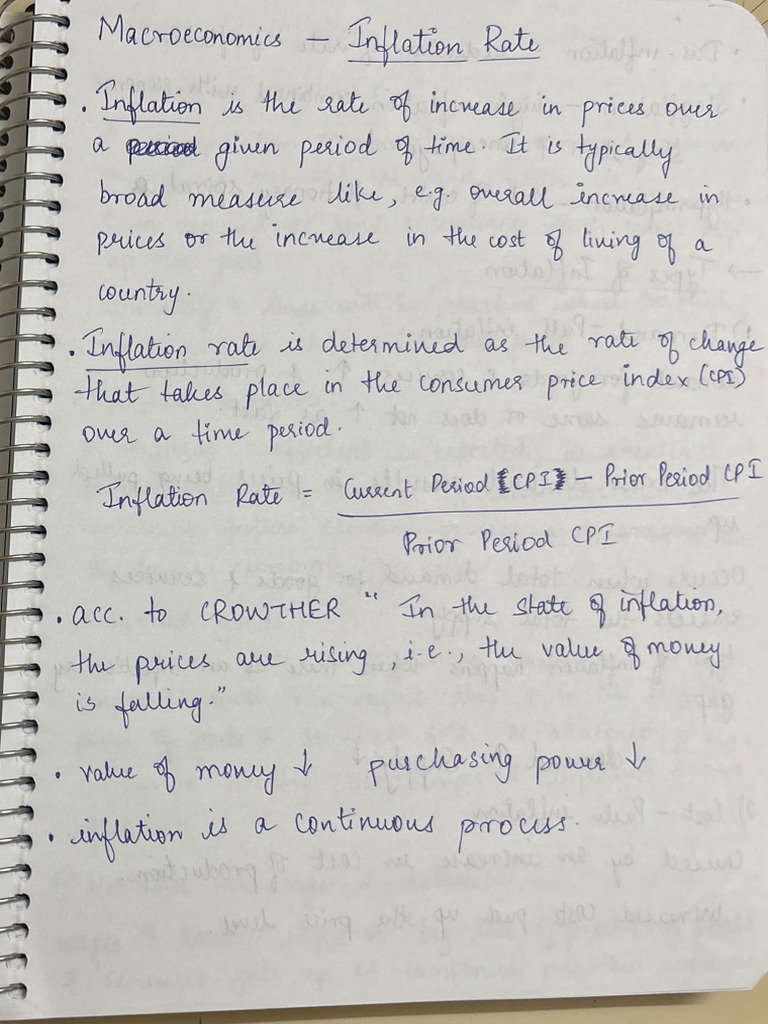 Macroeconomics — Inflation Rate
• Inflation is the rate of increase in prices over
a given period of time. It is typically
broad measure like, e.g. overall increase in
prices or the increase in the cost of living of a
country.
• Inflation rate is determined as the rate of change
that takes place in the consumer price index (CPI)
over a time period.
Inflation Rate = Current Period [CPI] – Prior Period CPI
Prior Period CPI
• acc. to CROWTHER “ In the state of inflation,
the prices are rising, i.e., the value of money
is falling.”
• value of money ↓ purchasing power ↓
• inflation is a continuous process.